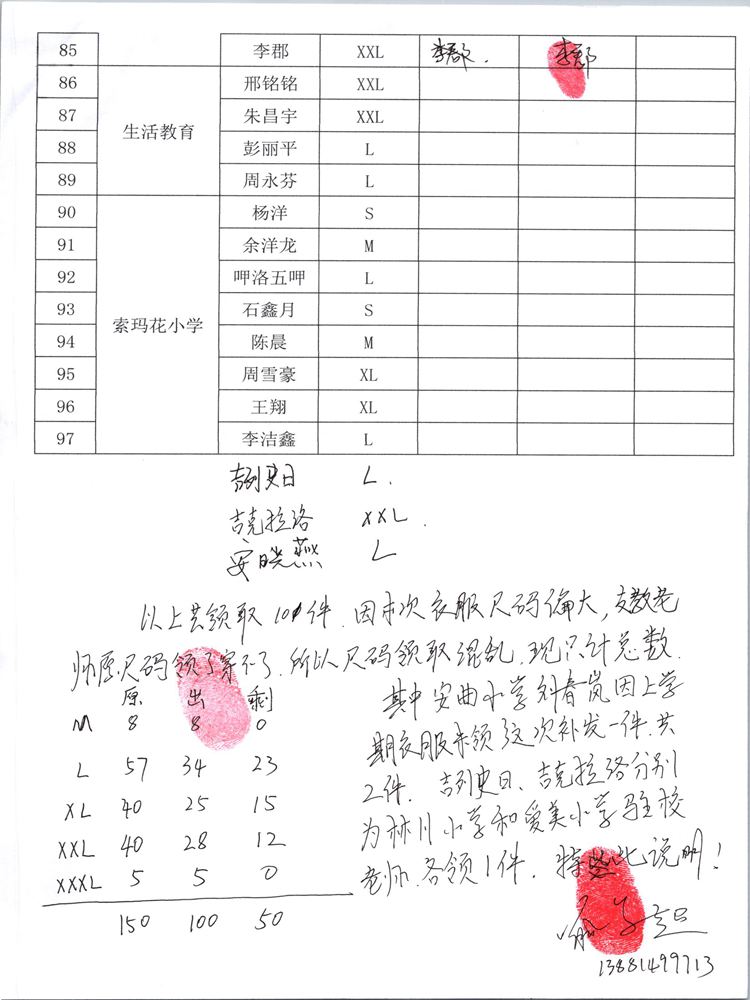 85 李郡 XXL 李郡. 李郡
86 邢铭铭 XXL
87 朱昌宇 XXL
生活教育
88 彭丽平 L
89 周永芬 L
90 杨洋 S
91 余洋龙 M
92 呷洛五呷 L
93 石鑫月 S
索玛花小学
94 陈晨 M
95 周雪豪 XL
96 王翔 XL
97 李洁鑫 L
吉列史日 L.
吉克拉洛 XXL.
安晓燕 L
以上共领取101件.因本次衣服尺码偏大,支教老
师原尺码领了穿不了.所以尺码领取混乱.现只计总数.
原 出 剩
M 8 8 0
L 57 34 23
XL 40 25 15
XXL 40 28 12
XXXL 5 5 0
150 100 50
其中安曲小学刘春岚因上学
期衣服未领这次补发一件.共
2件. 吉列史日、吉克拉洛分别
为林川小学和爱美小学驻校
老师.各领1件. 特此说明!
13881499713